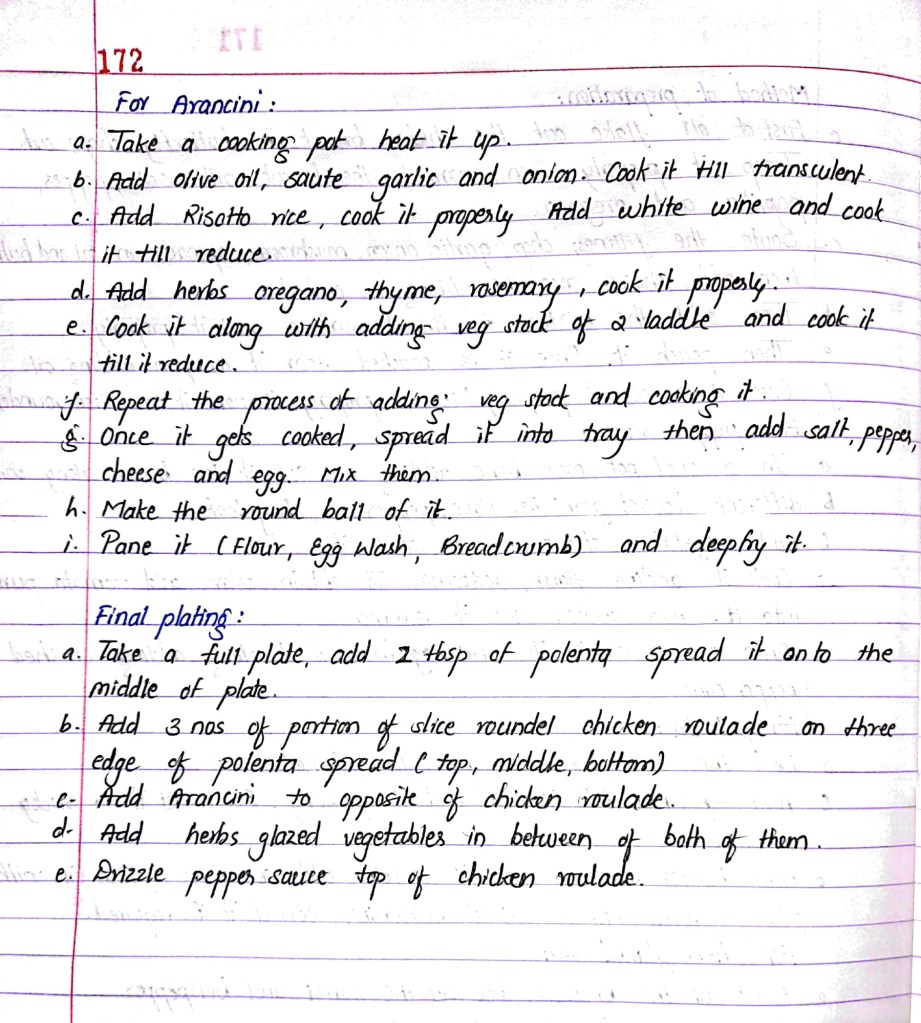 172
For Arancini :
a. Take a cooking pot heat it up.
b. Add olive oil, saute garlic and onion. Cook it till transculent.
c. Add Risotto rice, cook it properly Add white wine and cook
it till reduce.
d. Add herbs oregano, thyme, rosemary, cook it properly.
e. Cook it along with adding veg stock of 2 laddle and cook it
till it reduce.
f. Repeat the process of adding veg stock and cooking it.
g. Once it gets cooked, spread it into tray then add salt, pepper,
cheese and egg. Mix them.
h. Make the round ball of it.
i. Pane it (Flour, Egg Wash, Breadcrumb) and deepfry it.
Final plating :
a. Take a full plate, add 2 tbsp of polenta spread it onto the
middle of plate.
b. Add 3 nos of portion of slice roundel chicken roulade on three
edge of polenta spread (top, middle, bottom)
c. Add Arancini to opposite of chicken roulade.
d. Add herbs glazed vegetables in between of both of them.
e. Drizzle pepper sauce top of chicken roulade.